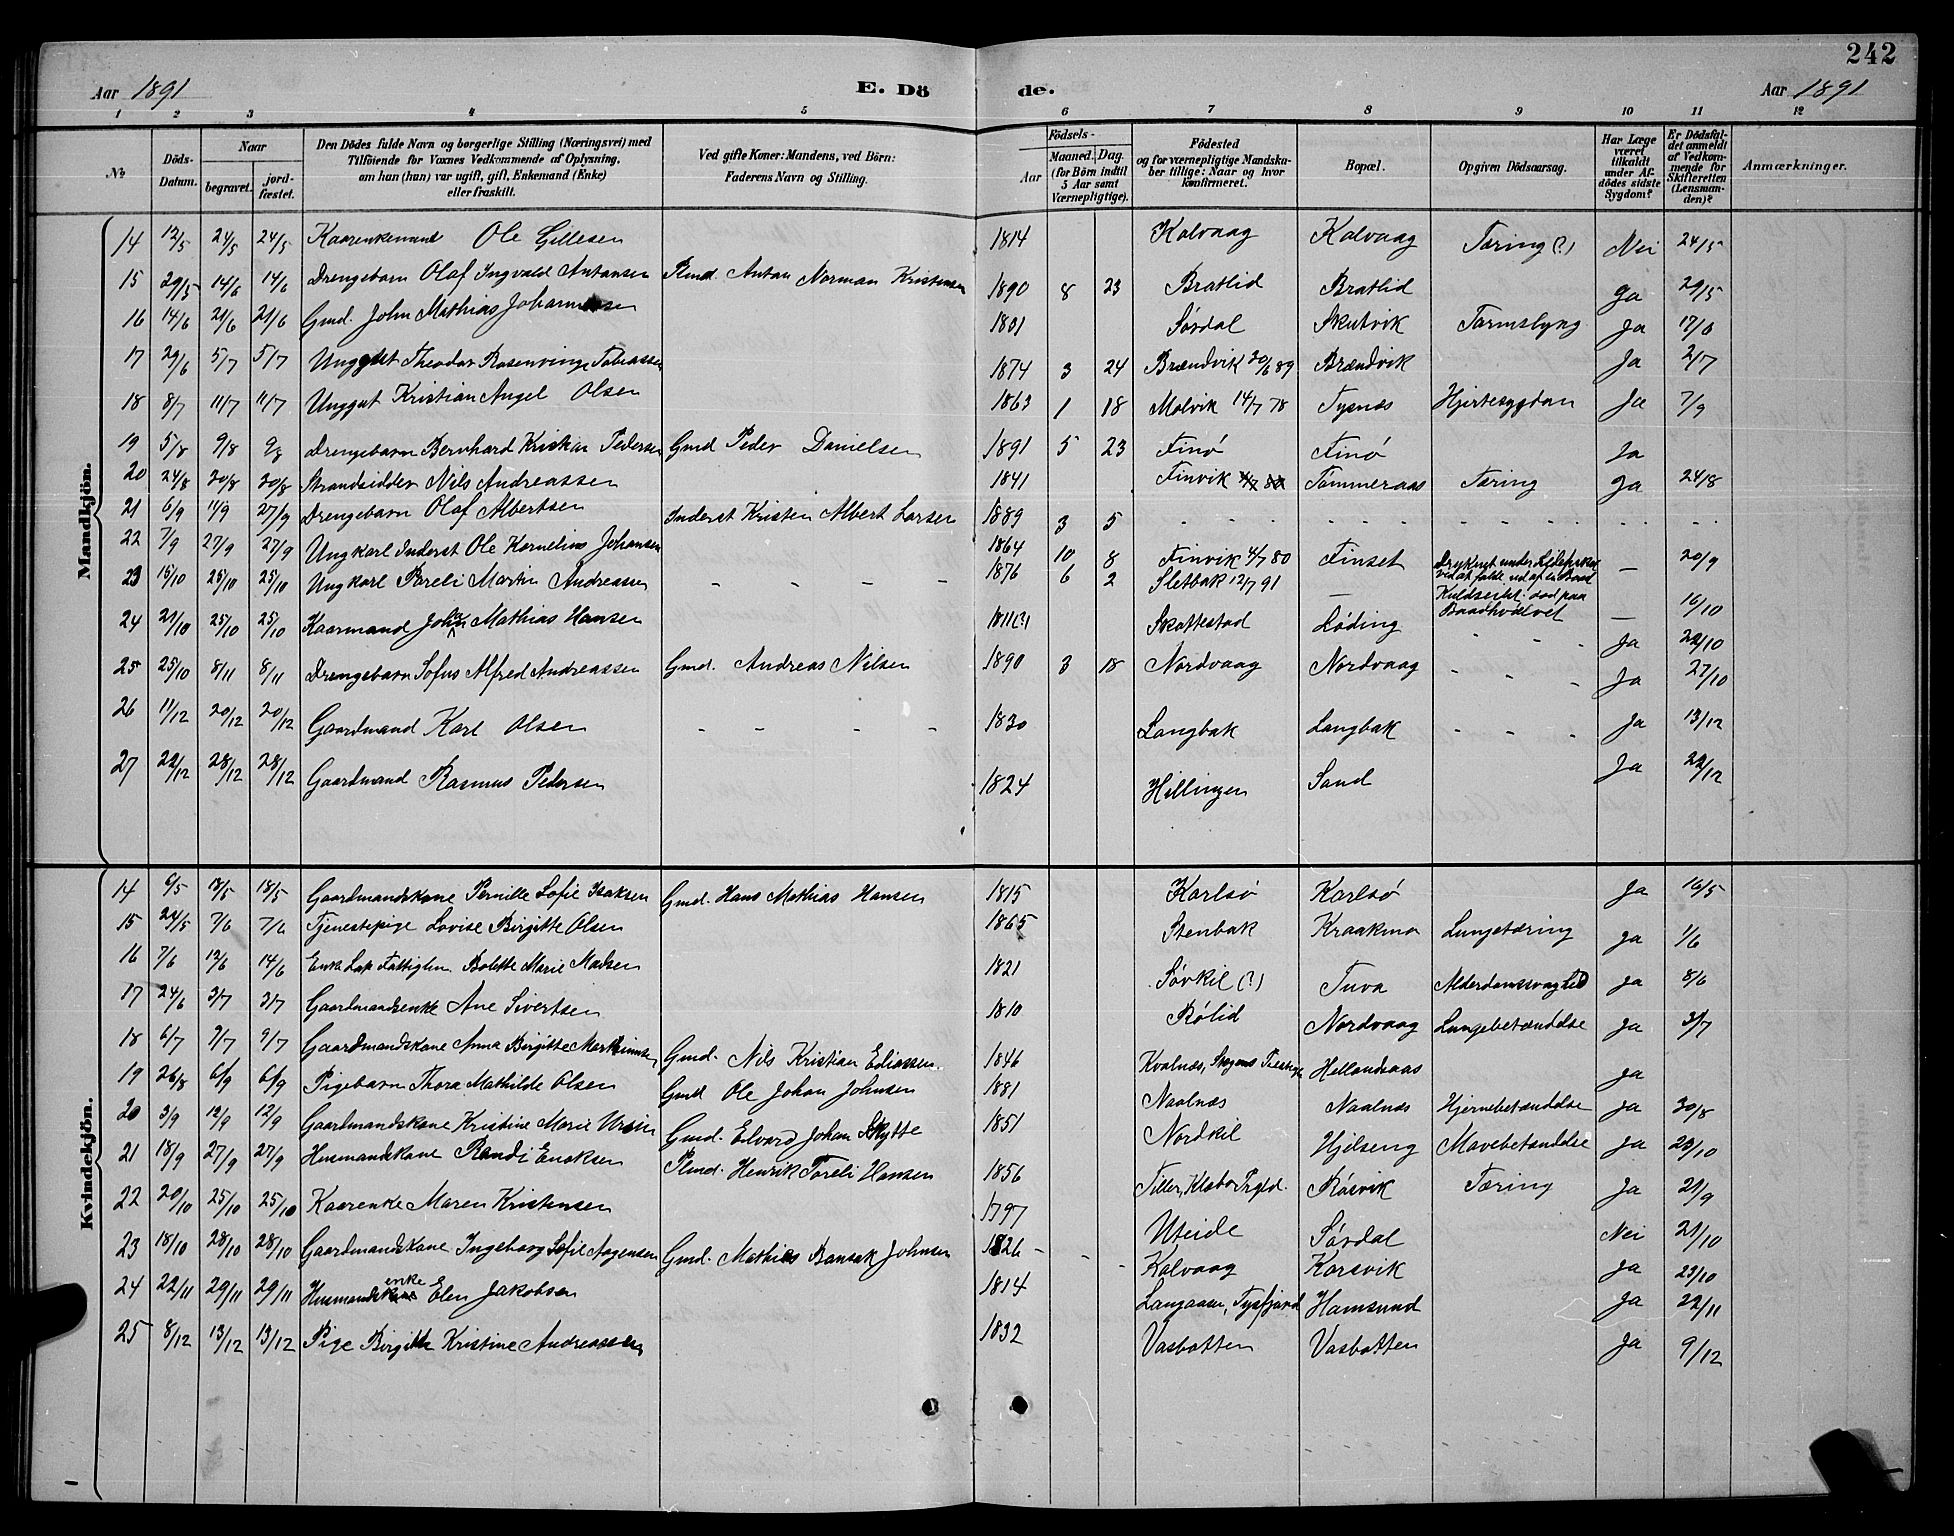 242
Aar 1891 E. Dö de. Aar 1891
1 2 3 4 5 6 7 8 9 10 11 12
No
Döds-Datum.
Naar
begravet.
jordfæstet.
Den Dödes fulde Navn og borgerlige Stilling (Næringsvei) med Tilföiende for Voxnes Vedkommende af Oplysning, om han (hun) var ugift, gift, Enkemand (Enke) eller fraskilt.
Ved gifte Koner: Mandens, ved Börn: Faderens Navn og Stilling.
Födsels-
Aar
Maaned. Dag.
(for Börn indtil 5 Aar samt Værnepligtige).
Födested og for værnepligtige Mandskaber tillige: Naar og hvor konfirmeret.
Bopæl.
Opgiven Dödsaarsag.
Har Læge været tilkaldt under Afdödes sidste Sygdom?
Er Dödsfaldet anmeldt af Vedkommende for Skifteretten (Lensmanden)?
Anmærkninger.
Mandkjön.
14 12/5 24/5 24/5 Kaarenkemand Ole Gillesen 1814 Kalvaag Kalvaag Tæring (?) Nei 24/5
15 29/5 14/6 14/6 Drengebarn Olaf Ingvald Antonsen Plmd. Anton Norman Kristensen 1890 8 23 Bratlid Bratlid Ja 29/5
16 14/6 21/6 21/6 Gmd. John Mathias Johannessen 1801 Sørdal Skutvik Tarmslyng Ja 17/6
17 29/6 5/7 5/7 Unggut Theodor Rosenvinge Tobiassen 1874 3 24 Brændvik 20/6 89 Brændvik Ja 2/7
18 8/7 11/7 11/7 Unggut Kristian Angel Olsen 1863 1 18 Molvik 14/7 78 Tysnes Hjertesygdom Ja 7/9
19 5/8 9/8 9/8 Drengebarn Bernhard Kristian Pedersen Gmd Peder Danielsen 1891 5 23 Finø Finø Ja
20 24/8 20/8 20/8 Strandsidder Nils Andreassen 1841 Finvik Tømmeraas Tæring Ja 24/8
21 6/9 11/9 27/9 Drengebarn Olaf Albertsen Inderst Kristen Albert Larsen 1889 3 5
22 7/9 27/9 27/9 Ungkarl Inderst Ole Kornelius Johansen 1864 10 8 Finvik 4/7 80 Finset Druknet under Sildefiske ved at falde ud af en Baad — 20/9
23 15/10 25/10 25/10 Ungkarl Pareli Martin Andreassen - - - - 1876 6 2 Sletbak 12/7 91 — Kuldseilet: død paa Baadhvælvet — 16/10
24 21/10 25/10 25/10 Kaarmand Johan Mathias Hansen 1811(?) Skottestad Løding Ja 22/10
25 25/10 8/11 8/11 Drengebarn Sofus Alfred Andreassen Gmd. Andreas Nilsen 1890 3 18 Nordvaag Nordvaag - - - Ja 27/10
26 11/12 20/12 20/12 Gaardmand Karl Olsen - - - - 1830 Langbak Langbak - - - Ja 13/12
27 22/12 28/12 28/12 Gaardmand Rasmus Pedersen 1824 Hillingen Sand Ja 22/12
Kvindekjön.
14 6/5 18/5 18/5 Gaardmandskone Pernille Sofie Isaksen Gmd. Hans Mathias Hansen 1815 Karlsø Karlsø Ja 16/5
15 24/5 7/6 7/6 Tjenestepige Lovise Birgitte Olsen 1865 Stenbak Kraakmo Lungetæring Ja 1/6
16 7/6 12/6 14/6 Enke Lap Fattiglem Bolette Marie Madsen 1821 Sørkil (?) Tuva Alderdomssvaghed Ja 8/6
17 24/6 3/7 3/7 Gaardmandsenke Ane Sivertsen 1810 Rølid Nordvaag Lungebetændelse Ja 3/7
18 6/7 9/7 9/7 Gaardmandskone Anna Birgitte Martinusen Gmd. Nils Kristian Ediassen 1846 Kvalnæs, Stegens Præstegj Hellandsaas Ja
19 26/8 6/9 6/9 Pigebarn Thora Mathilde Olsen Gmd Ole Johan Johnsen 1881 Naalnæs Naalnæs Hjernebetændelse Ja 30/8
20 3/9 12/9 12/9 Gaardmandskone Kristine Marie Ursin Gmd. Edvard Johan Skytte 1851 Nordkil Hjelseng Mavebetændelse Ja 23/10
21 18/9 27/9 27/9 Husmandskone Randi Enoksen Plmd. Henrik Pareli Hansen 1856 Tiller, Klæbo Prgjld. Røsvik Tæring Ja 21/9
22 20/10 25/10 25/10 Kaarenke Maren Kristensen 1797 Uteide Sørdal Nei 21/10
23 18/10 28/10 28/10 Gaardmandskone Ingeborg Sofie Aagensen Gmd. Mathias Bansak Johnsen 1826 - - - Kalvaag Korsvik Ja 23/10
24 22/11 29/11 29/11 Husmandsenke Elen Jakobsen 1814 Langaasen, Tysfjord Hamsund Ja 22/11
25 8/12 13/12 13/12 Pige Birgitte Kristine Andreassen 1832 Vasbotten Vasbotten Ja 9/12